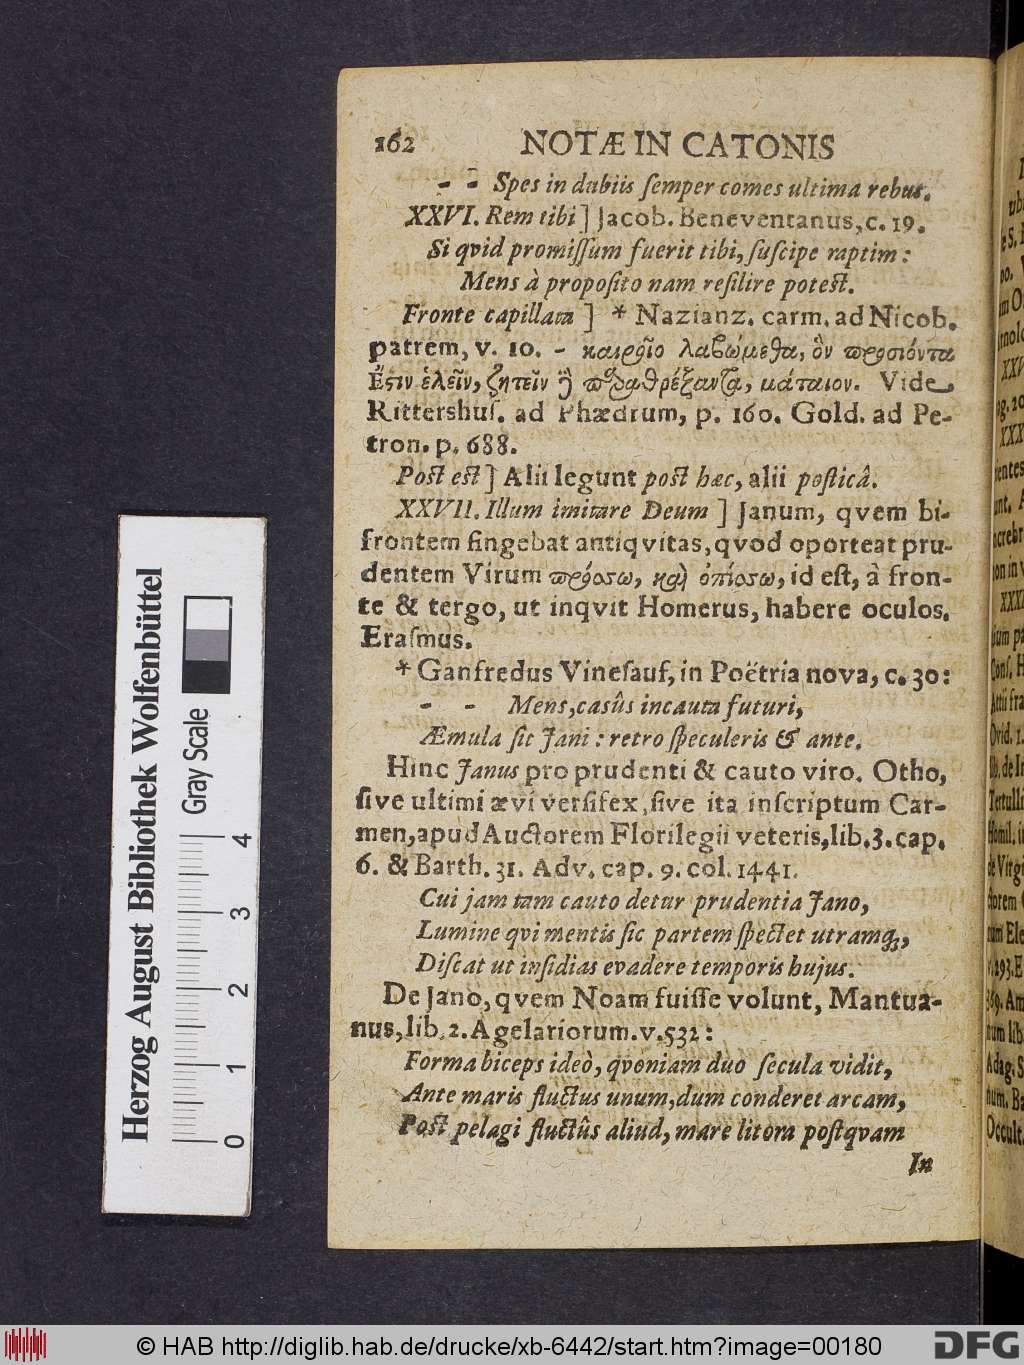 162 NOTÆ IN CATONIS
- - Spes in dubiis ſemper comes ultima rebus.
XXVI. Rem tibi ] Jacob. Beneventanus, c. 19.
Si qvid promiſſum fuerit tibi, ſuſcipe raptim:
Mens à propoſito nam reſilire poteſt.
Fronte capillata ] * Nazianz. carm. ad Nicob.
patrem, v. 10. - καιροῖο λαβώμεθα, ὃν προσιόντα
Ἔστιν ἑλεῖν, ζητεῖν ἢ παραθρέξαντα, μάταιον. Vide
Rittershuſ. ad Phædrum, p. 160. Gold. ad Pe-
tron. p. 688.
Poſt eſt ] Alii legunt poſt hæc, alii poſticâ.
XXVII. Illum imitare Deum ] Janum, qvem bi-
frontem fingebat antiqvitas, qvod oporteat pru-
dentem Virum πρόσω, καὶ ὀπίσω, id eſt, à fron-
te & tergo, ut inqvit Homerus, habere oculos.
Eraſmus.
* Ganfredus Vineſauf, in Poëtria nova, c. 30:
- - Mens, casûs incauta futuri,
Æmula ſit Jani: retro ſpeculeris & ante.
Hinc Janus pro prudenti & cauto viro. Otho,
ſive ultimi ævi verſifex, ſive ita inſcriptum Car-
men, apud Auctorem Florilegii veteris, lib. 3. cap.
6. & Barth. 31. Adv. cap. 9. col. 1441.
Cui jam tam cauto detur prudentia Jano,
Lumine qvi mentis ſic partem ſpectet utramq;,
Diſcat ut inſidias evadere temporis hujus.
De Jano, qvem Noam fuiſſe volunt, Mantua-
nus, lib. 2. Agelariorum. v. 532:
Forma biceps ideò, qvoniam duo ſecula vidit,
Ante maris fluctus unum, dum conderet arcam,
Poſt pelagi fluctûs aliud, mare litora poſtqvam
In
Herzog August Bibliothek Wolfenbüttel
Gray Scale
0 1 2 3 4
© HAB http://diglib.hab.de/drucke/xb-6442/start.htm?image=00180
DFG